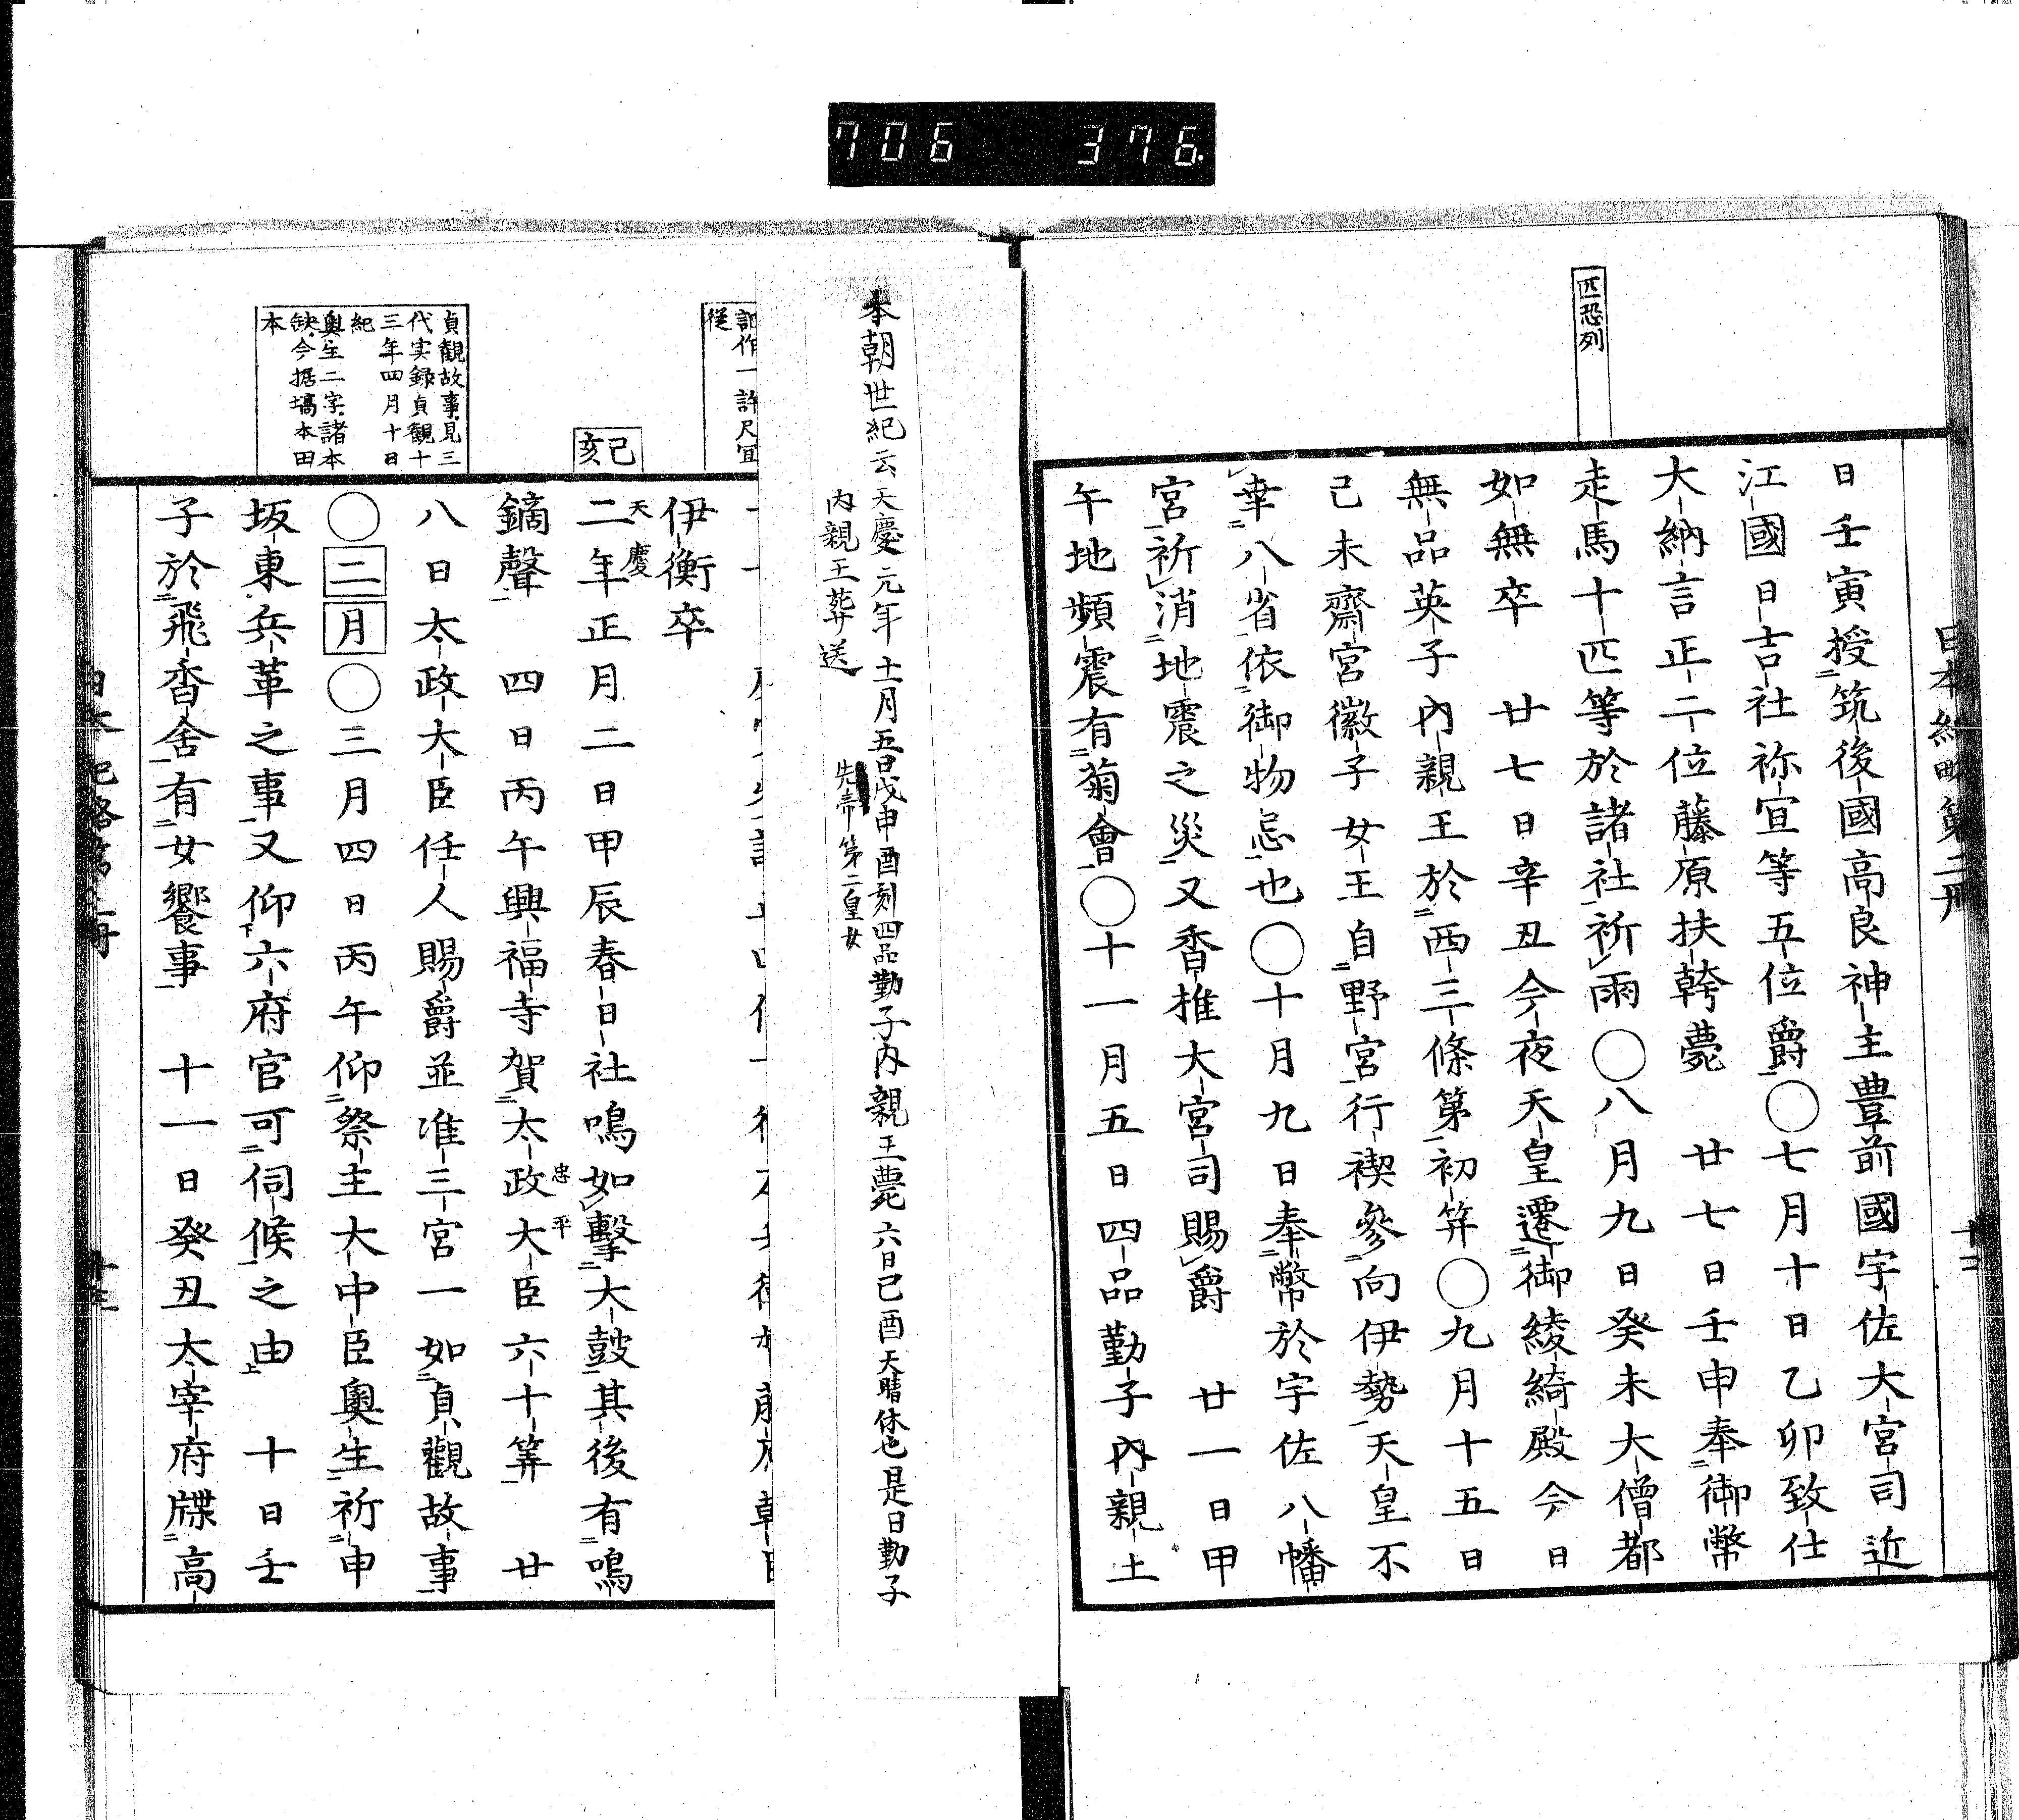 706 376
匹恐列
日本紀略第二冊
十二
日壬寅授筑後國高良神主豊前國宇佐大宮司近
江國日吉社祢宜等五位爵〇七月十日乙卯致仕
大納言正二位藤原扶幹薨 廿七日壬申奉御幣
走馬十匹等於諸社祈雨〇八月九日癸未大僧都
如無卒 廿七日辛丑今夜天皇遷御綾綺殿今日
無品英子內親王於西三條第初笄〇九月十五日
己未齋宮徽子女王自野宮行禊參向伊勢天皇不
幸八省依御物忌也〇十月九日奉幣於宇佐八幡
宮祈消地震之災又香推大宮司賜爵 廿一日甲
午地頻震有菊會〇十一月五日四品勤子內親土
本朝世紀云天慶元年十一月五日戊申酉刻四品勤子内親王薨 六日己酉天晴休也是日勤子
内親王葬送 先帝第二皇女
記作一許尺宜
從
己亥
貞觀故事見三
代实録貞觀十
三年四月十日
紀
奧生二字諸本
缺今据塙本田
本
伊衡卒
天慶
二年正月二日甲辰春日社鳴如擊大鼓其後有鳴
鏑聲 四日丙午興福寺賀太政大臣六十筭 廿
忠平
八日太政大臣任人賜爵並准三宮一如貞觀故事
〇二月〇三月四日丙午仰祭主大中臣奧生祈申
坂東兵革之事又仰六府官可伺候之由 十日壬
子於飛香舍有女饗事 十一日癸丑太宰府牒高